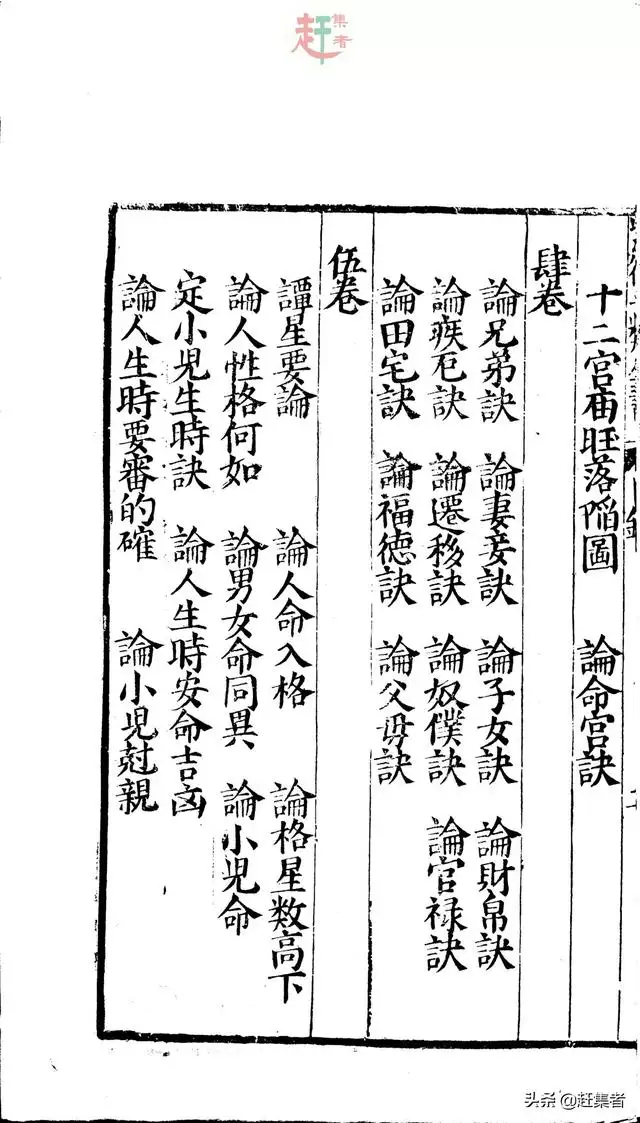 赶集者
十二宫庙旺落陷圖 論命宫訣
肆卷
論兄弟訣 論妻妾訣 論子女訣 論財帛訣
論疾厄訣 論遷移訣 論奴僕訣 論官禄訣
論田宅訣 論福德訣 論父母訣
伍卷
譚星要論 論人命入格 論格星数高下
論人性格何如 論男女命同異 論小児命
定小児生時訣 論人生時安命吉凶
論人生時要審的確 論小児尅親
头条 @赶集者